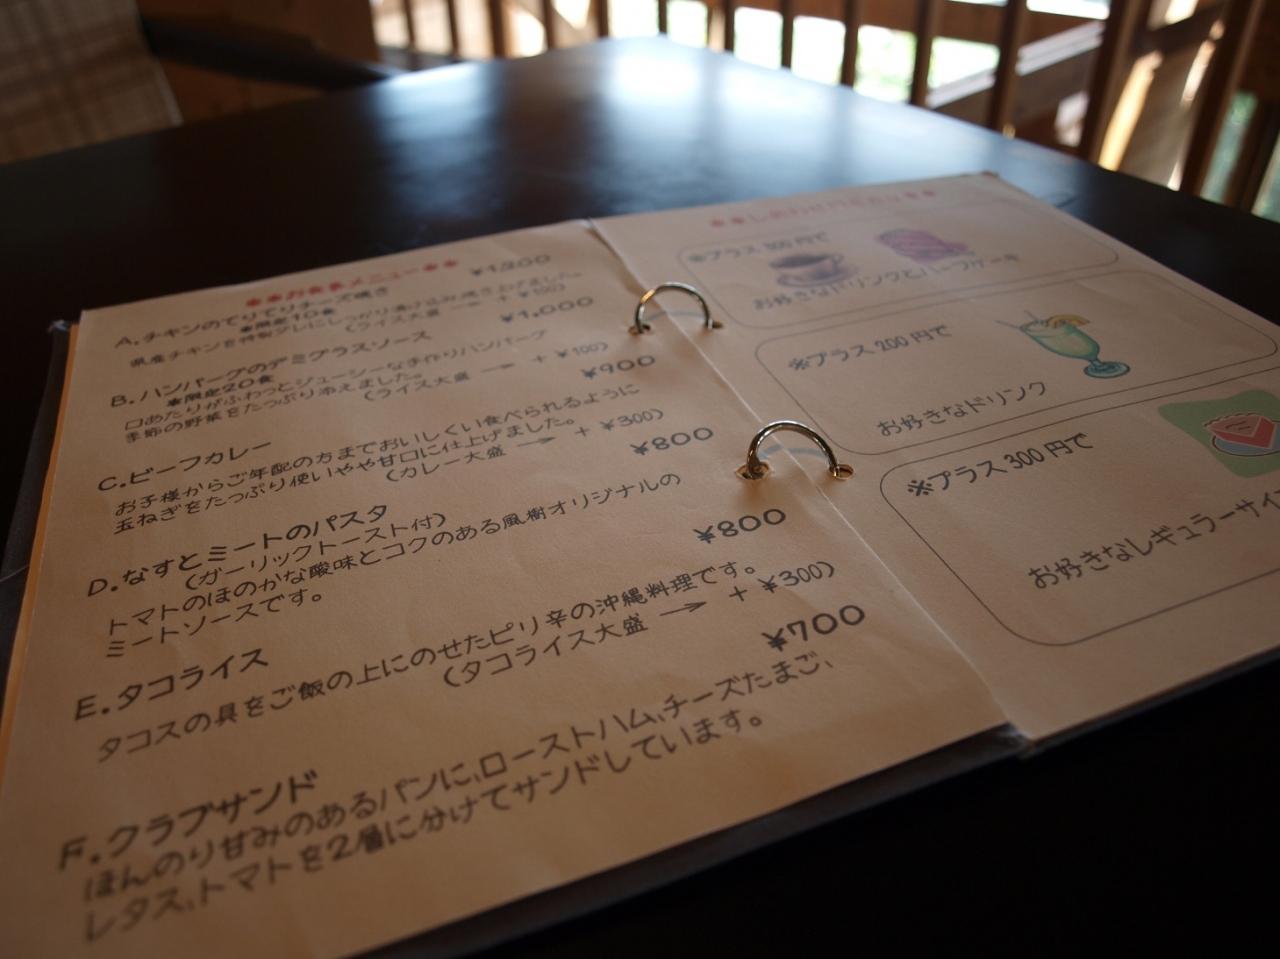 **お食事メニュー**
A.チキンのてりてりチーズ焼き ¥1,200
*限定10食
県産チキンを特製ダレにしっかり漬け込み焼き上げました。
(ライス大盛 → + ¥100)
B.ハンバーグのデミグラスソース ¥1,000
*限定20食
口あたりがふわっとジューシーな手作りハンバーグ
季節の野菜をたっぷり添えました。
(ライス大盛 → + ¥100)
C.ビーフカレー ¥900
お子様からご年配の方までおいしくい食べられるように
玉ねぎをたっぷり使いやや甘口に仕上げました。
(カレー大盛 → + ¥300)
D.なすとミートのパスタ ¥800
(ガーリックトースト付)
トマトのほのかな酸味とコクのある風樹オリジナルの
ミートソースです。
E.タコライス ¥800
タコスの具をご飯の上にのせたピリ辛の沖縄料理です。
(タコライス大盛 → + ¥300)
F.クラブサンド ¥700
ほんのり甘みのあるパンに、ローストハム、チーズたまご、
レタス、トマトを2層に分けてサンドしています。
※プラス 300円で
お好きなドリンクとハーフケーキ
※プラス 200円で
お好きなドリンク
※プラス 300円で
お好きなレギュラーサイ